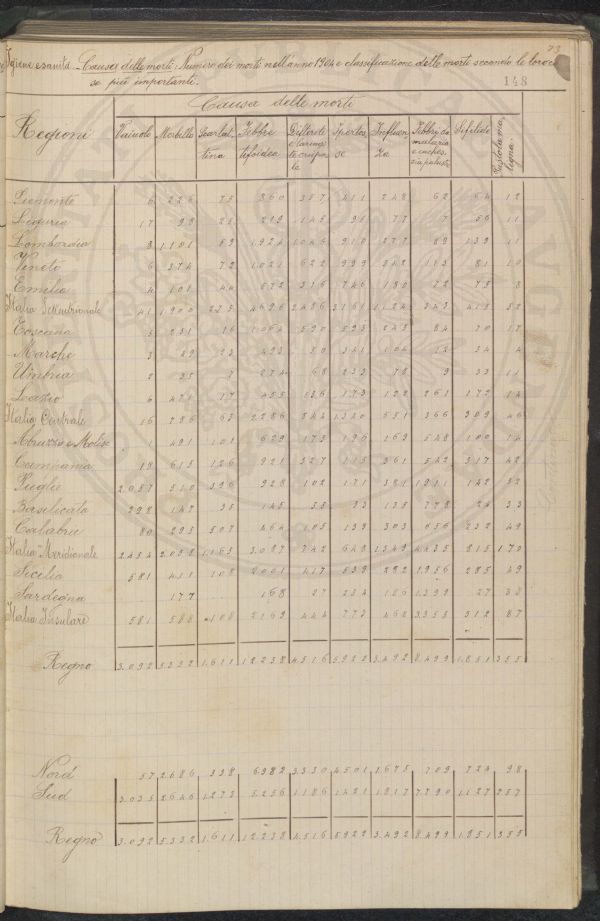 73
Igiene e sanità. Causa delle morti: Numero dei morti nell'anno 1904 e classificazione delle morti secondo le loro cau
se più importanti.
148
Causa delle morti
Regioni Vaiuolo Morbillo Scarlat- Febbre Difterite Ipertos- Influen Febbri da Sifilide Pustola ma
tina tifoidea e laringi se za malaria ligna.
te crupa e caches.
le sia palustre
Piemonte 6 226 75 860 357 411 248 62 64 12
Liguria 17 98 25 219 145 95 77 7 56 11
Lombardia 8 1.101 59 1.924 1.046 910 277 89 139 11
Veneto 6 374 72 1.021 622 999 342 113 81 10
Emilia 4 101 44 572 316 746 180 72 75 8
Italia Settentrionale 41 1.900 275 4.696 2.486 3.161 1.124 343 415 52
Toscana 5 231 16 1.064 590 593 245 84 70 17
Marche 3 89 23 493 50 341 104 12 34 4
Umbria 2 35 7 274 68 233 78 9 33 11
Lazio 6 431 17 455 136 173 122 261 172 14
Italia Centrale 16 786 63 2.286 844 1.340 551 366 309 46
Abruzzo e Molise 1 491 101 629 173 196 169 548 100 14
Campania 18 615 126 921 327 115 361 542 317 42
Puglie 2.057 510 396 928 102 171 381 1.911 142 32
Basilicata 298 149 35 145 35 33 135 778 24 33
Calabrie 80 293 507 464 105 133 303 656 232 49
Italia Meridionale 2.454 2.058 1.165 3.087 742 648 1.349 4.435 815 170
Sicilia 581 411 108 2.001 417 539 282 1.956 285 49
Sardegna 177 168 27 234 186 1.399 27 38
Italia Insulare 581 588 108 2.169 444 773 468 3.355 312 87
Regno 3.092 5.332 1.611 12.238 4.516 5.922 3.492 8.499 1.851 355
Nord 57 2.686 338 6.982 3.330 4.501 1.675 709 724 98
Sud 3.035 2.646 1.273 5.256 1.186 1.421 1.817 7.790 1.127 257
Regno 3.092 5.332 1.611 12.238 4.516 5.922 3.492 8.499 1.851 355